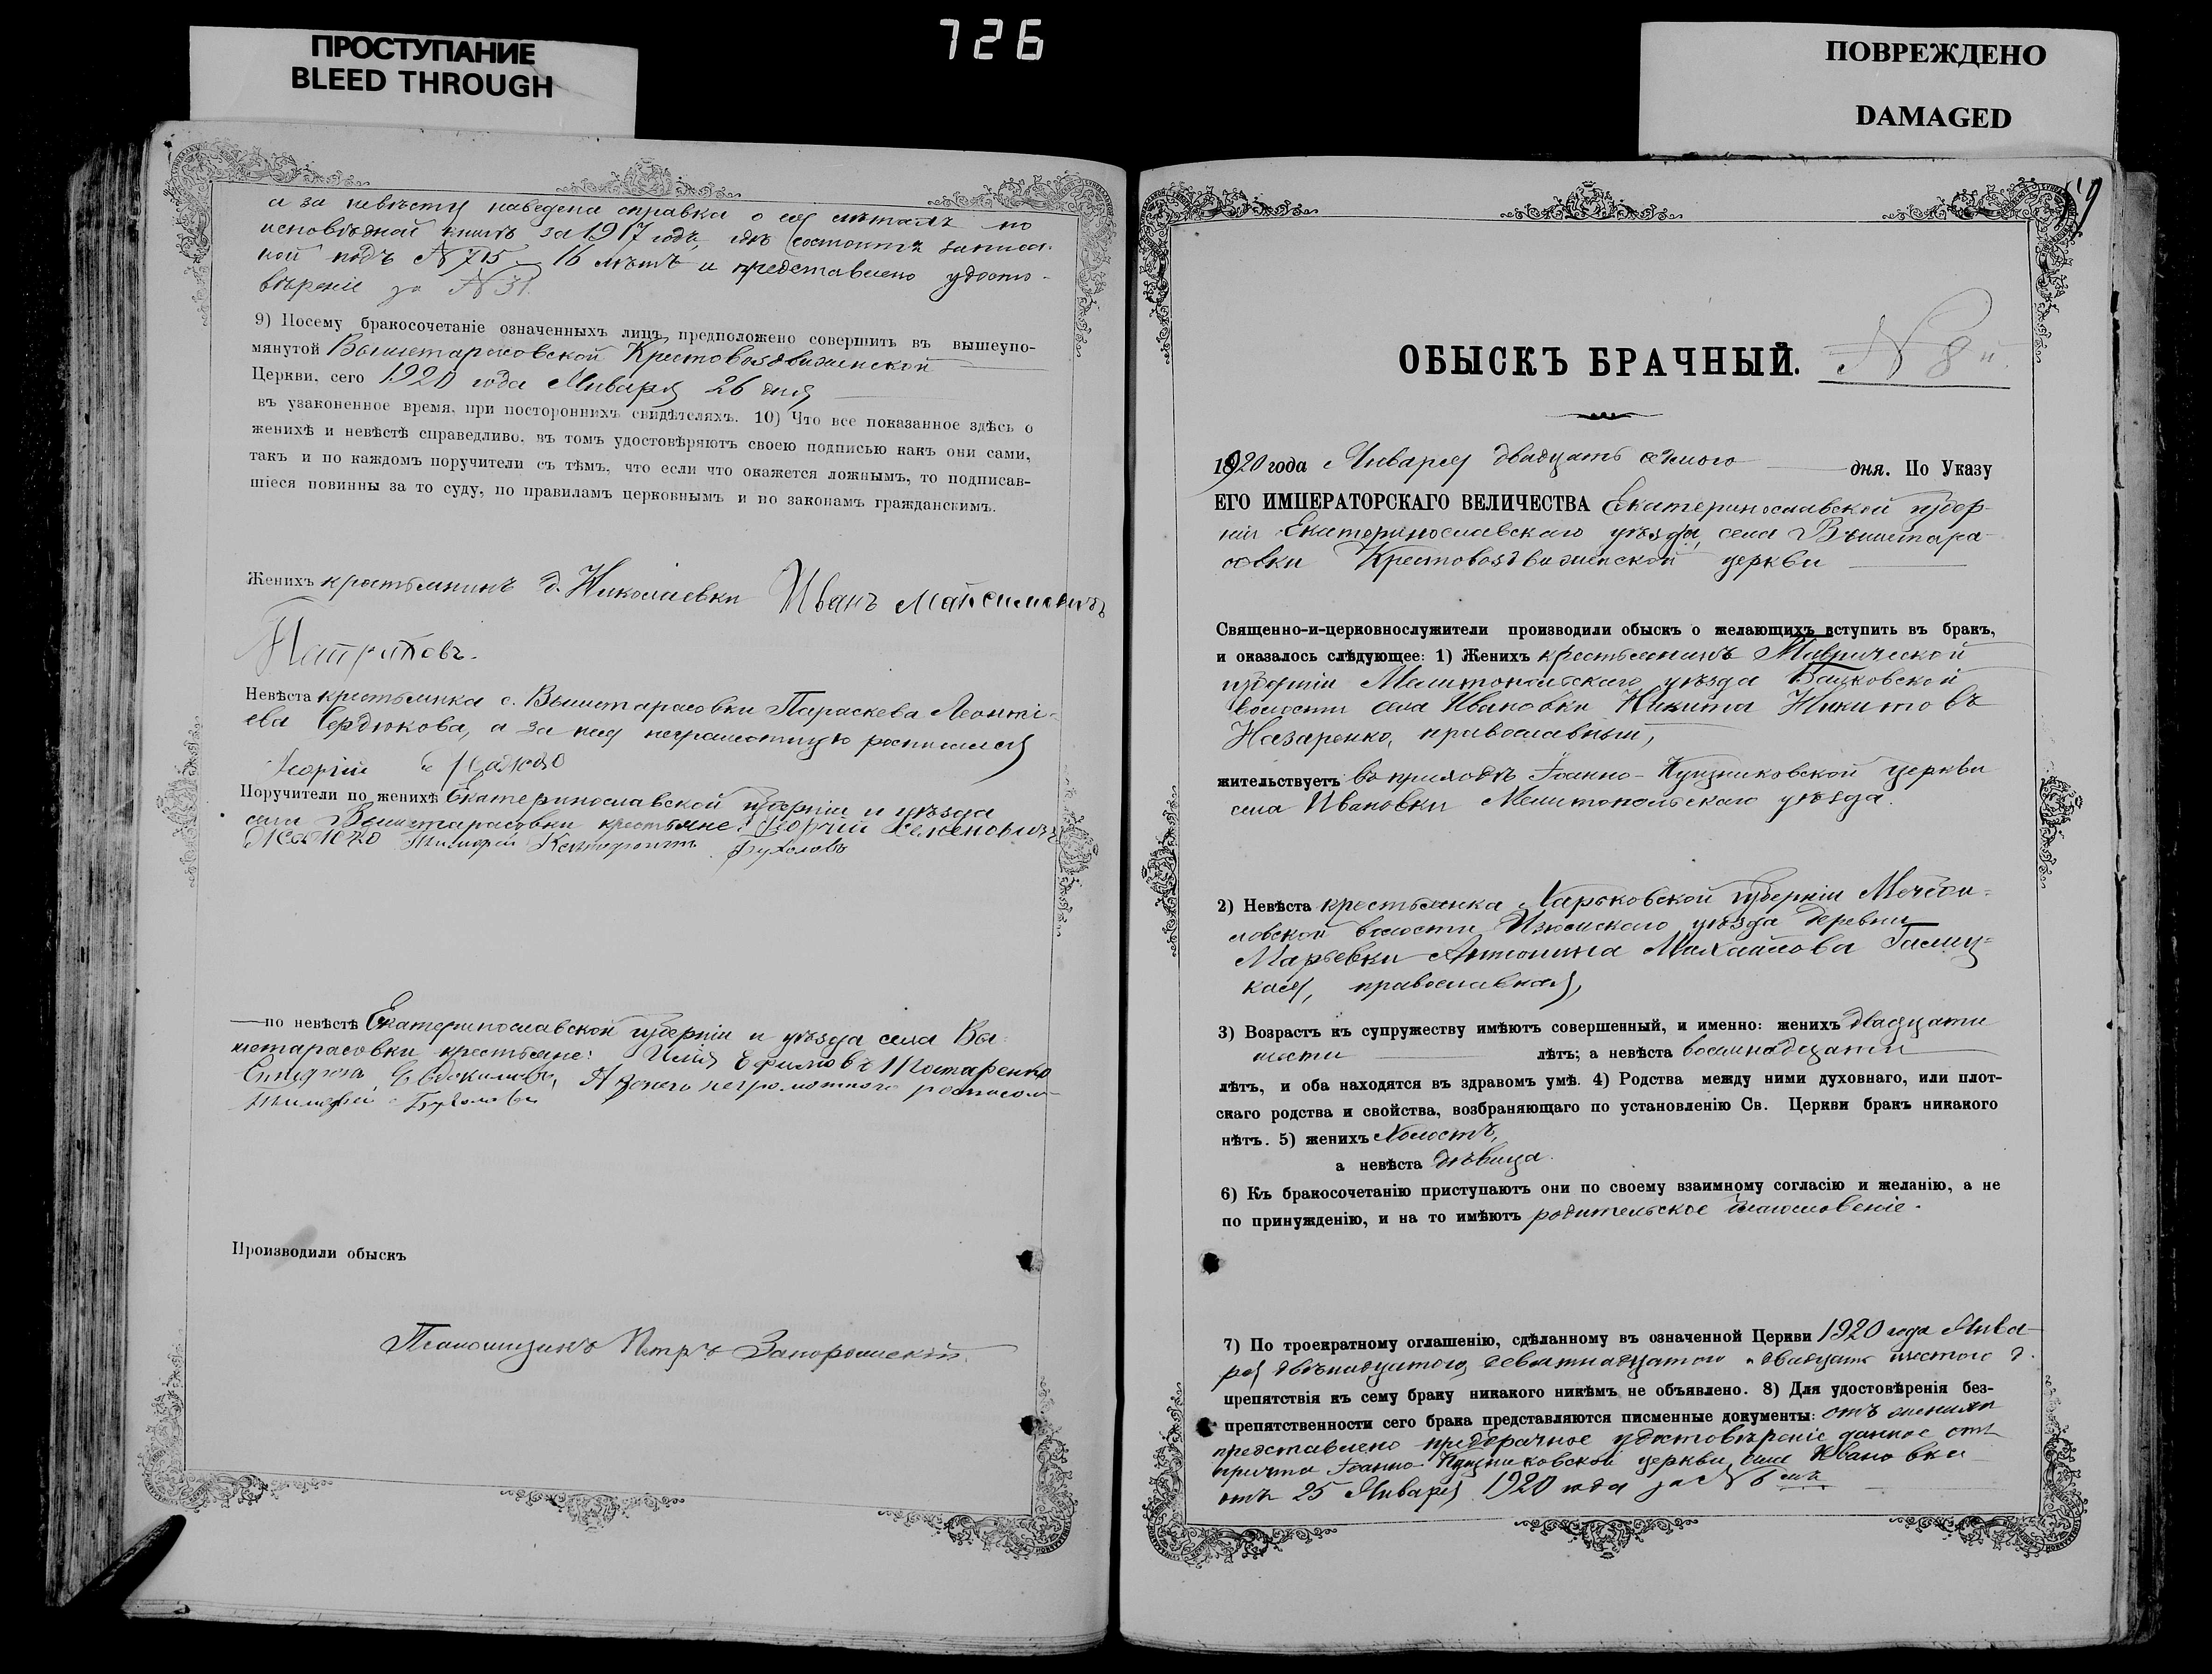 ПРОСТУПАНИЕ
BLEED THROUGH
726
ПОВРЕЖДЕНО
DAMAGED
а за невѣсту наведена справка о ея лѣтахъ по
исповѣдной книгѣ за 1917 годъ, гдѣ состоитъ записа-
ной подъ № 715 – 16 лѣтъ и представлено удосто-
вѣреніе за № 31.
9) Посему бракосочетаніе означенныхъ лицъ предположено совершить въ вышеупо-
мянутой Вышетарасовской Крестовоздвиженской
Церкви, сего 1920 года Января 26 дня
въ узаконенное время, при постороннихъ свидѣтеляхъ. 10) Что все показанное здѣсь о
женихѣ и невѣстѣ справедливо, въ томъ удостовѣряютъ своею подписью какъ они сами,
такъ и по каждомъ поручители съ тѣмъ, что если что окажется ложнымъ, то подписав-
шіеся повинны за то суду, по правиламъ церковнымъ и по законамъ гражданскимъ.
Женихъ крестьянинъ д. Николаевки Иванъ Максимовичъ
Невѣста крестьянка с. Вышетарасовки Параскева Леонті-
ева Сердюкова, а за нея неграмотную росписался
Георгій
Поручители по женихѣ Екатеринославской губерніи и уѣзда
села Вышетарасовки крестьяне: Георгій Семеновичъ
Тимофей
—по невѣстѣ Екатеринославской губерніи и уѣзда села Вы-
шетарасовки крестьяне: Илія Ефимовъ
неграмотного росписался
Тимофей
Производили обыскъ
Псаломщикъ Петръ Запорожскій
ОБЫСКЪ БРАЧНЫЙ. № 8й.
1920 года Января двадцать седьмого дня. По Указу
ЕГО ИМПЕРАТОРСКАГО ВЕЛИЧЕСТВА Екатеринославской губер-
ніи Екатеринославскаго уѣзда, села Вышетара-
совки Крестовоздвиженской церкви
Священно-и-церковнослужители производили обыскъ о желающихъ вступить въ бракъ,
и оказалось слѣдующее: 1) Женихъ крестьянинъ Таврической
губерніи Мелитопольскаго уѣзда
волости села Ивановки Никита Никитовъ
Назаренко, православный,
жительствуетъ въ приходѣ Іоанно- церкви
села Ивановки Мелитопольскаго уѣзда.
2) Невѣста крестьянка Харьковской губерніи Мечеби-
ловской волости Изюмскаго уѣзда деревни
Марьевки Антонина Михайлова
православная,
3) Возрастъ къ супружеству имѣютъ совершенный, и именно: женихъ двадцати
шести лѣтъ; а невѣста восемнадцати
лѣтъ, и оба находятся въ здравомъ умѣ. 4) Родства между ними духовнаго, или плот-
скаго родства и свойства, возбраняющаго по установленію Св. Церкви бракъ никакого
нѣтъ. 5) женихъ холостъ,
а невѣста дѣвица.
6) Къ бракосочетанію приступаютъ они по своему взаимному согласію и желанію, а не
по принужденію, и на то имѣютъ родительское благословеніе.
7) По троекратному оглашенію, сдѣланному въ означенной Церкви 1920 года Янва-
ря двѣнадцатого, девятнадцатого и двадцать шестого д.
препятствія къ сему браку никакого никѣмъ не объявлено. 8) Для удостовѣренія без-
препятственности сего брака представляются писменные документы: отъ жениха
представлено предбрачное удостовѣреніе данное отъ
причта Іоанно- церкви села Ивановки
отъ 25 Января 1920 года за № 6